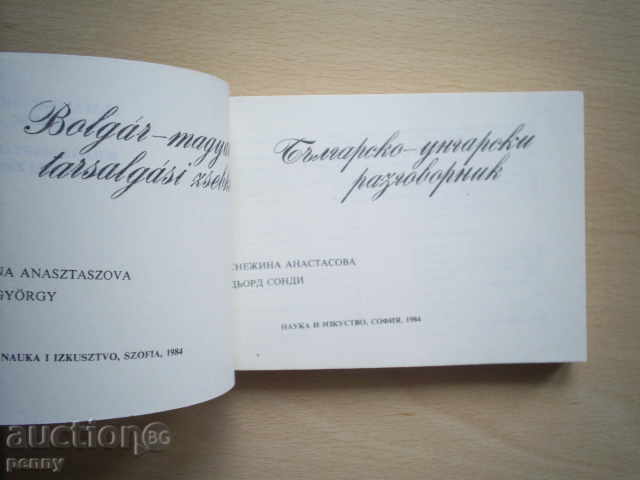 Bolgár-magya
tarsalgási zseb
NA ANASZTASZOVA
GYÖRGY
NAUKA I IZKUSZTVO, SZOFIA, 1984
Българско-унгарски
разговорник
СНЕЖИНА АНАСТАСОВА
ДЬОРД СОНДИ
НАУКА И ИЗКУСТВО, СОФИЯ, 1984
auctionBG
penny